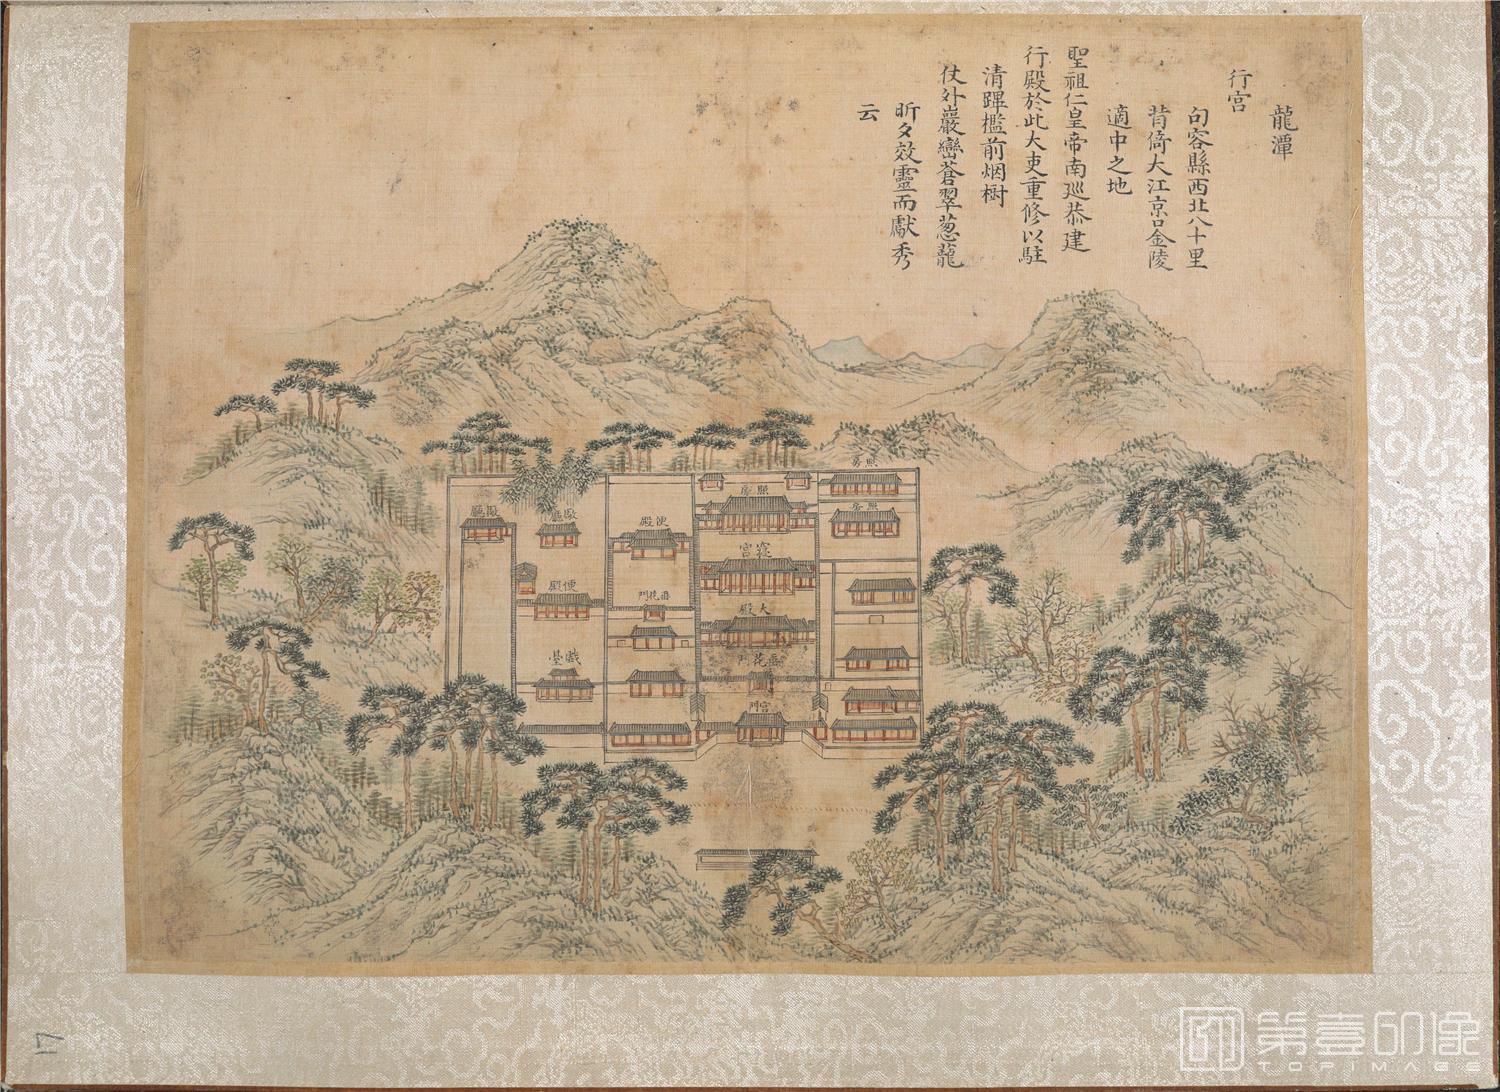 龍潭
行宮
句容縣西北八十里
背倚大江京口金陵
適中之地
聖祖仁皇帝南巡恭建
行殿於此大吏重修以駐
清蹕檻前烟樹
仗外巖巒蒼翠葱蘢
昕夕效靈而獻秀
云
照房
照房
照房
寢宮
大殿
垂花門
宮門
便殿
垂花門
敞廳
敞廳
便殿
戲臺
17
第壹印像
TOPIMAGE